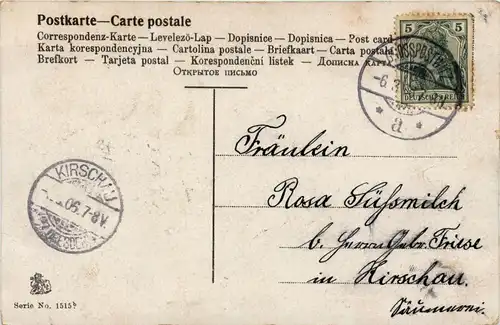 Postkarte—Carte postale
Correspondenz-Karte — Levelező-Lap — Dopisnice — Dopisnica — Post card
Karta korespondencyjna — Cartolina postale — Briefkaart — Carta postală
Brefkort — Tarjeta postal — Korespondenční listek — Дописна карта
Открытое письмо
5 5
DEUTSCHES REICH
-6.3
* a *
KIRSCHAU
06.7-8V.
Fräulein
Rosa Süßmilch
b. Herrn Gebr. Friese
in Kirschau.
Serie No. 1515